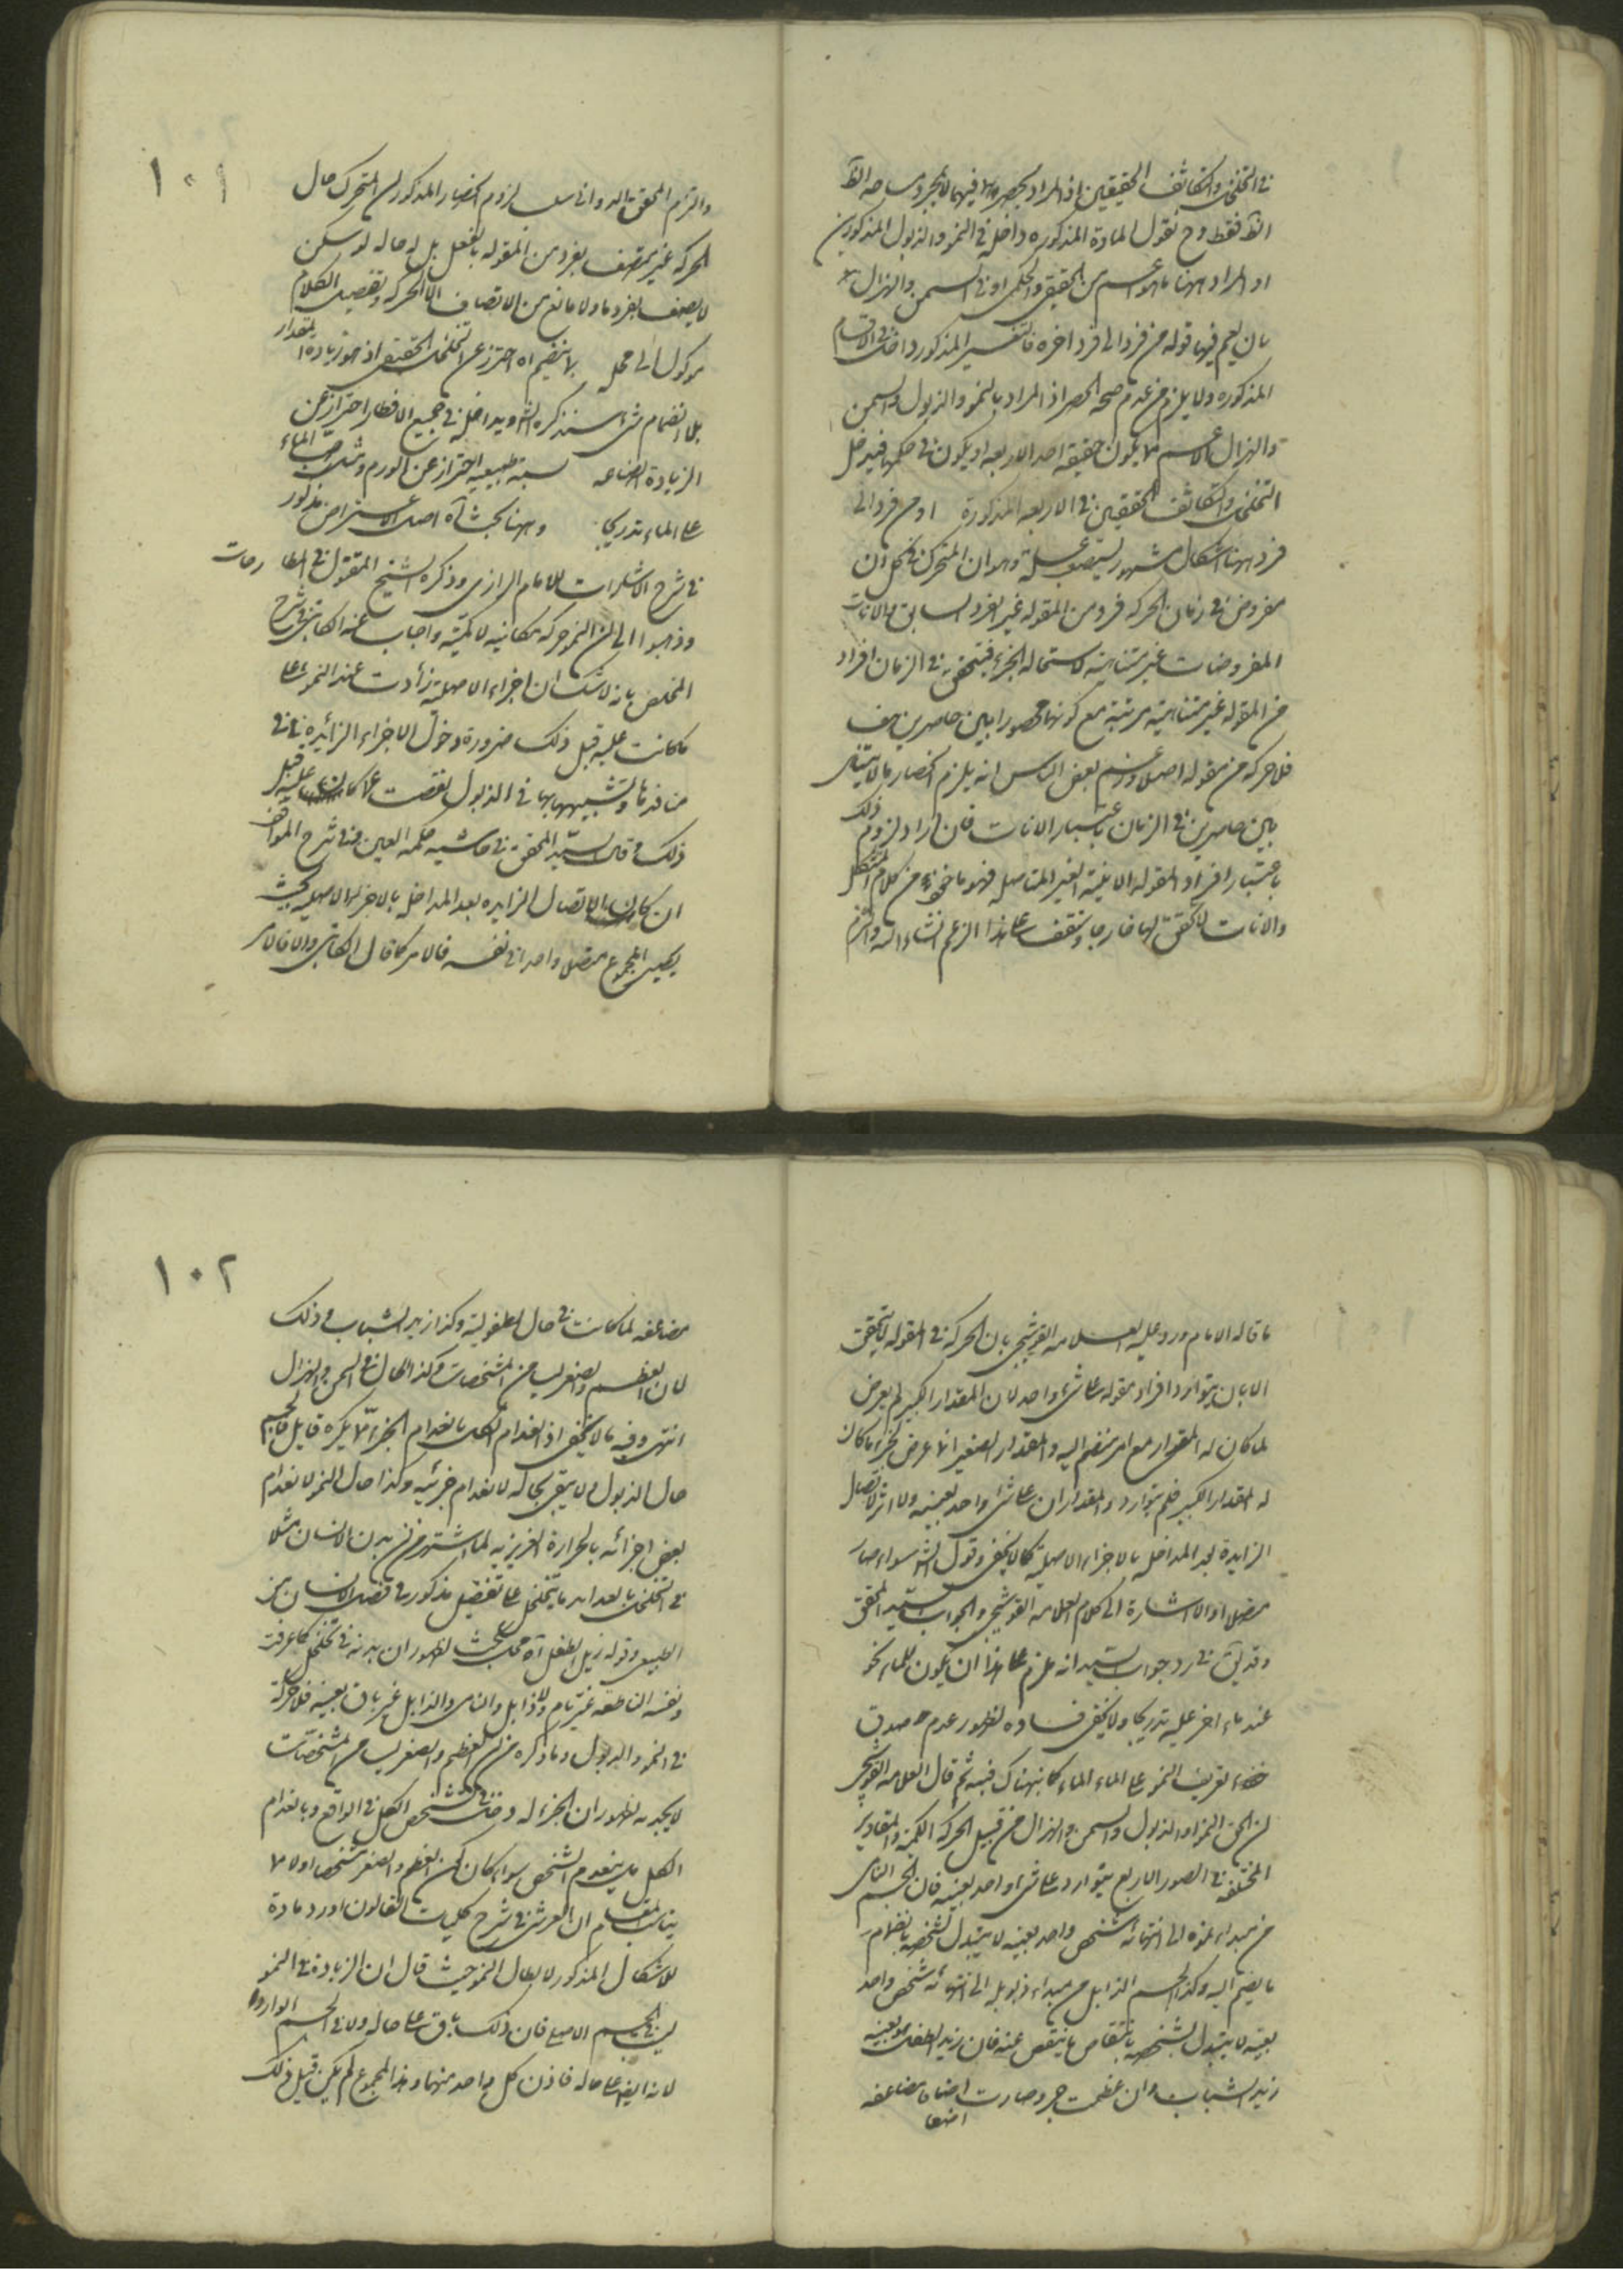 في التخلخل والتكاثف الحقيقيين اذ المراد بحصر فيهما لا مجرد
فقط وح نقول المادة المذكوره داخل في النمو والذبول المذكورين
او المراد ههنا ما هو اعم من الحقيقي والحكمى او في السمن والهزال
بان يعم فيها قوله من فرد الى فرد اخره فالتفسير المذكور داخل في الاقسام
المذكوره ولا يلزم من عدم صحة الحصر اذ المراد بالنمو والذبول والسمن
والهزال الاعم مما يكون حقيقة احد الاربعه او يكون في حكمها فيدخل
التخلخل والتكاثف الحقيقين في الاربعه المذكورة او من فرد الى
فرد ههنا اشكال مشهور يستصعب حله وهو ان المتحرك في كل ان
مفروض في زمان الحركه فرد من المقوله غير الفرد السابق والانات
المفروضات غير متناهية لاستحاله الجزء فيتحقق في الزمان افراد
من المقوله غير متناهيه مرتبة مع كونها محصورا بين حاصرين هف
فلا حركه من مقوله اصلا وزعم بعض الناس انه يلزم انحصار ما لا يتناهى
بين حاصرين في الزمان باعتبار الانات فان اراد لزوم ذلك
باعتبار افراد المقوله الانية الغير المتناهيه فهو ماخوذ من كلام المستشكل
والانات لا تحقق لها خارجا وستقف على هذا الزعم انشاء الله والتزم
١٠١
والتزم المحقق الدوانى لزوم انحصار المذكور ان المتحرك حال
الحركه غير متصف بفرد من المقوله بالفعل بل له حاله لو سكن
لا يصف بفرد ما ولا مانع من الاتصاف الا الحركه وتفصيل الكلام
موكول الى محله بلا ينضم اه احترز عن التخلخل الحقيقى اذ هو زيادة المقدار
بلا انضمام شى سنذكره الش ويداخله في جميع الاقطار احتراز عن
الزيادة الصناعه نسبة طبيعيه احتراز عن الورم ومثل صب الماء
على الماء تدريجا وههنا بحث اه اصل الاعتراض مذكور
في شرح الاشارات للامام الرازى وذكره الشيخ المقتول في المطارحات
وذهبوا الى ان النمو حركه مكانيه لا كميّة واجاب عنه الكاتبى في شرح
الملخص بانه لا شك ان اجزاء الاصلية زادت عند النمو على
ما كانت عليه قبل ذلك ضرورة دخول الاجزاء الزائدة في
منافذها وتشبيهها بها في الذبول نقصت عما كانت عليه قبل
ذلك وقال السيد المحقق في حاشيه حكمه العين وفى شرح المواقف
ان كان الاتصال الزايده بعد المداخل بالاجزاء الاصليه بحيث
يصير المجموع متصلا واحدا في نفسه فالامر كما قال الكاتبى والا فالامر
ما قاله الامام ورد عليه العلامه القوشجى بان الحركه في المقوله لا يتحقق
الا بان يتوارد افراد مقوله على شى واحد لان المقدار الكبير لم يعرض
لما كان له المقدار مع امر ينضم اليه والمقدار الصغير انما عرض لجزء ما كان
له المقدار الكبير فلم يتوارد المقداران على شى واحد بعينه ولا اثر لاتصال
الزايدة بعد المداخل بالاجزاء الاصلية كما لا يخفى وقول الش سواء صار
متصلا او لا اشارة الى كلام العلامه القوشجى والجواب السيد المحقق
وقد يق في رد جواب السيد انه يلزم على هذا ان يكون للماء نمو
عند ماء اخر عليه تدريجا ولا يخفى فساده لظهور عدم صدق
تعريف النمو على الماء الماء كما نبهناك فيه ثم قال العلامه القوشجى
ان الحق النمو والذبول والسمن والهزال من قبيل الحركه الكمية والمقادير
المختلفة في الصور الاربع يتوارد على شى واحد بعينه فان الجسم النامى
من مبداء نموه الى انتهائه شخص واحد بعينه لا يتبدل تشخصه بانضمام
ما ينضم اليه وكذا الجسم الذابل من مبداء ذبوله الى انتهائه شخص واحد
بعينه لا يتبدل تشخصه بانتقاص ما ينتقص عنه فان زيد الطفل هو بعينه
زيد الشباب وان عظمت جر وصارت اضعافا مضاعفه
١٠٢
مضاعفه لما كانت في حال الطفولية وكذا زيد الشباب وذلك
لان العظم والصغر ليسا من المشخصات وكذا الحال في السمن والهزال
انتهى وفيه ما لا يخفى اذ انعدام الكل بانعدام الجزء مما لا ينكره قايل فالجسم
حال الذبول لا يبقى بحاله لانعدام جزئيه وكذا حال النمو لانعدام
بعض اجزائه بالحرارة الغريزيه لما اشتهر من ان بدن الانسان مثلا
في التخلل ابدا بدل ما يتحلل على تفصيل مذكور في الانسان من
الطبيعى وقوله زيد الطفل اه محل بحث لظهور ان بدنه في تخلل كما عرفت
ونفسه الناطقه غير نام ولا ذابل والنامى والذابل غير باق بعينه فلا حركة
في النمو والذبول وما ذكره من ان العظم والصغر ليسا من المشخصات
لا يجديه لظهور ان الجزء له دخل في تشخص الكل في الواقع وبانعدام
الكل ينعدم الشخص سواء كان العظم والصغر مشخصا او لا مما
يناسب المقام ان القرشى في شرح كليات القانون اورد مادة
للاشكال المذكور لابطال النمو حيث قال ان الزيادة في النمو
ليس في الجسم الاصلى فان ذلك باق على حاله ولا في الجسم الوارد
لانه ايضا على حاله فاذن كل واحد منهما وهذا المجموع لم يكن قبل ذلك